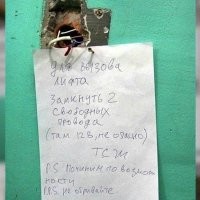 для вызова
лифта
Замкнуть 2
свободных
провода
(там 12В, не опасно)
ТСЖ
P.S Починим по возможности
ности
P.P.S. не обрывайте